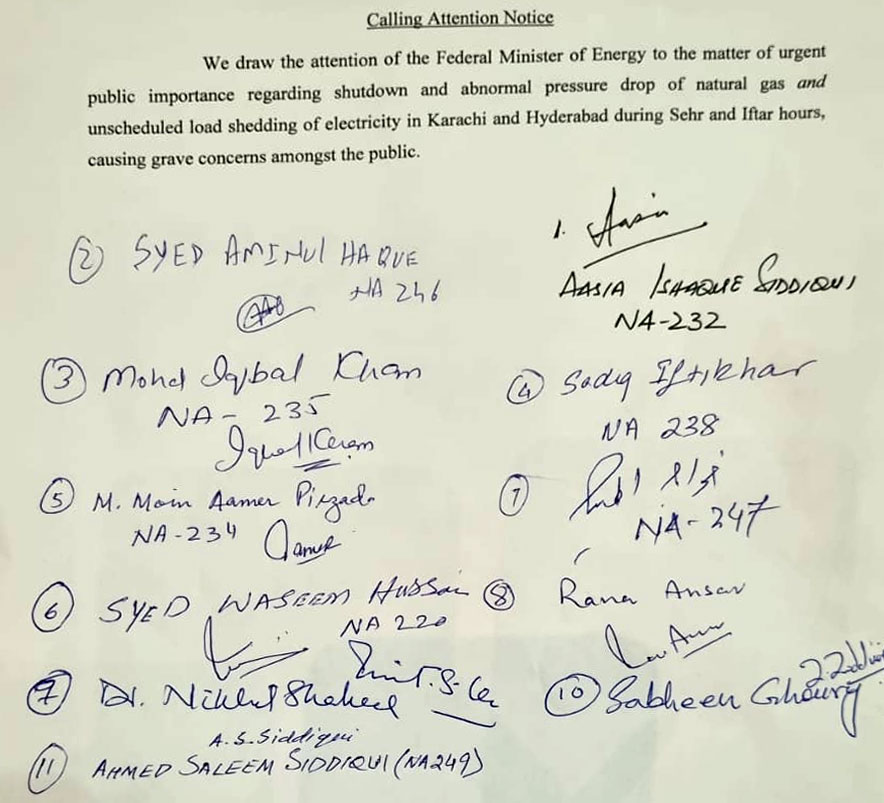 Calling Attention Notice
We draw the attention of the Federal Minister of Energy to the matter of urgent
public importance regarding shutdown and abnormal pressure drop of natural gas and
unscheduled load shedding of electricity in Karachi and Hyderabad during Sehr and Iftar hours,
causing grave concerns amongst the public.
1. Aasia
AASIA ISHAQUE SIDDIQUI
NA-232
(2) SYED AMINUL HAQUE
NA 246
(3) Mohd Iqbal Khan
NA- 235
(4) Sadiq Iftikhar
NA 238
(5) M. Moin Aamer Pirzada
NA-234 Aamer
(7)
NA-247
(6) SYED WASEEM HUSSain
NA 220
(8) Rana Ansar
(7) Dr. Nikhat Shakeel
(10) Sabheen Ghoury
A.S.Siddiqui
(11) AHMED SALEEM SIDDIQUI (NA249)